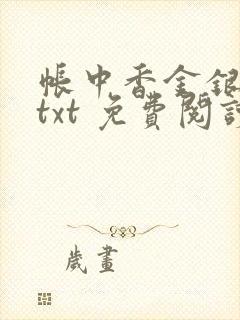 帳中香金銀
txt 免費閱讀
歲晝